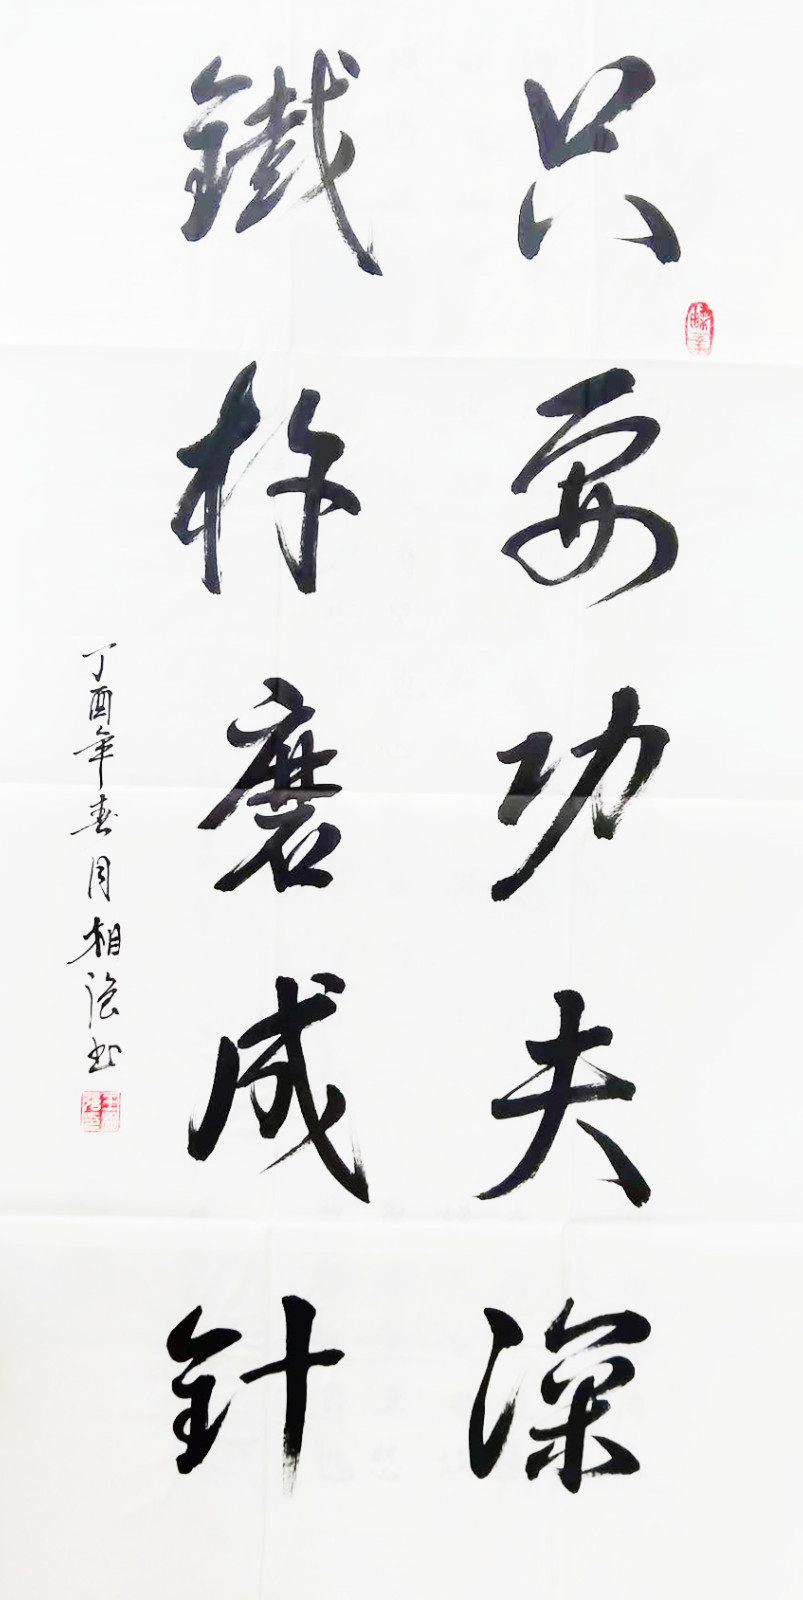 只要功夫深
鐵杵磨成針
丁酉年春月相強书